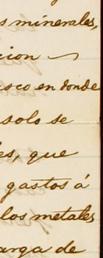 s minerales,
cion
sco en donde
solo se
es, que
gastos á
los metales
arga de